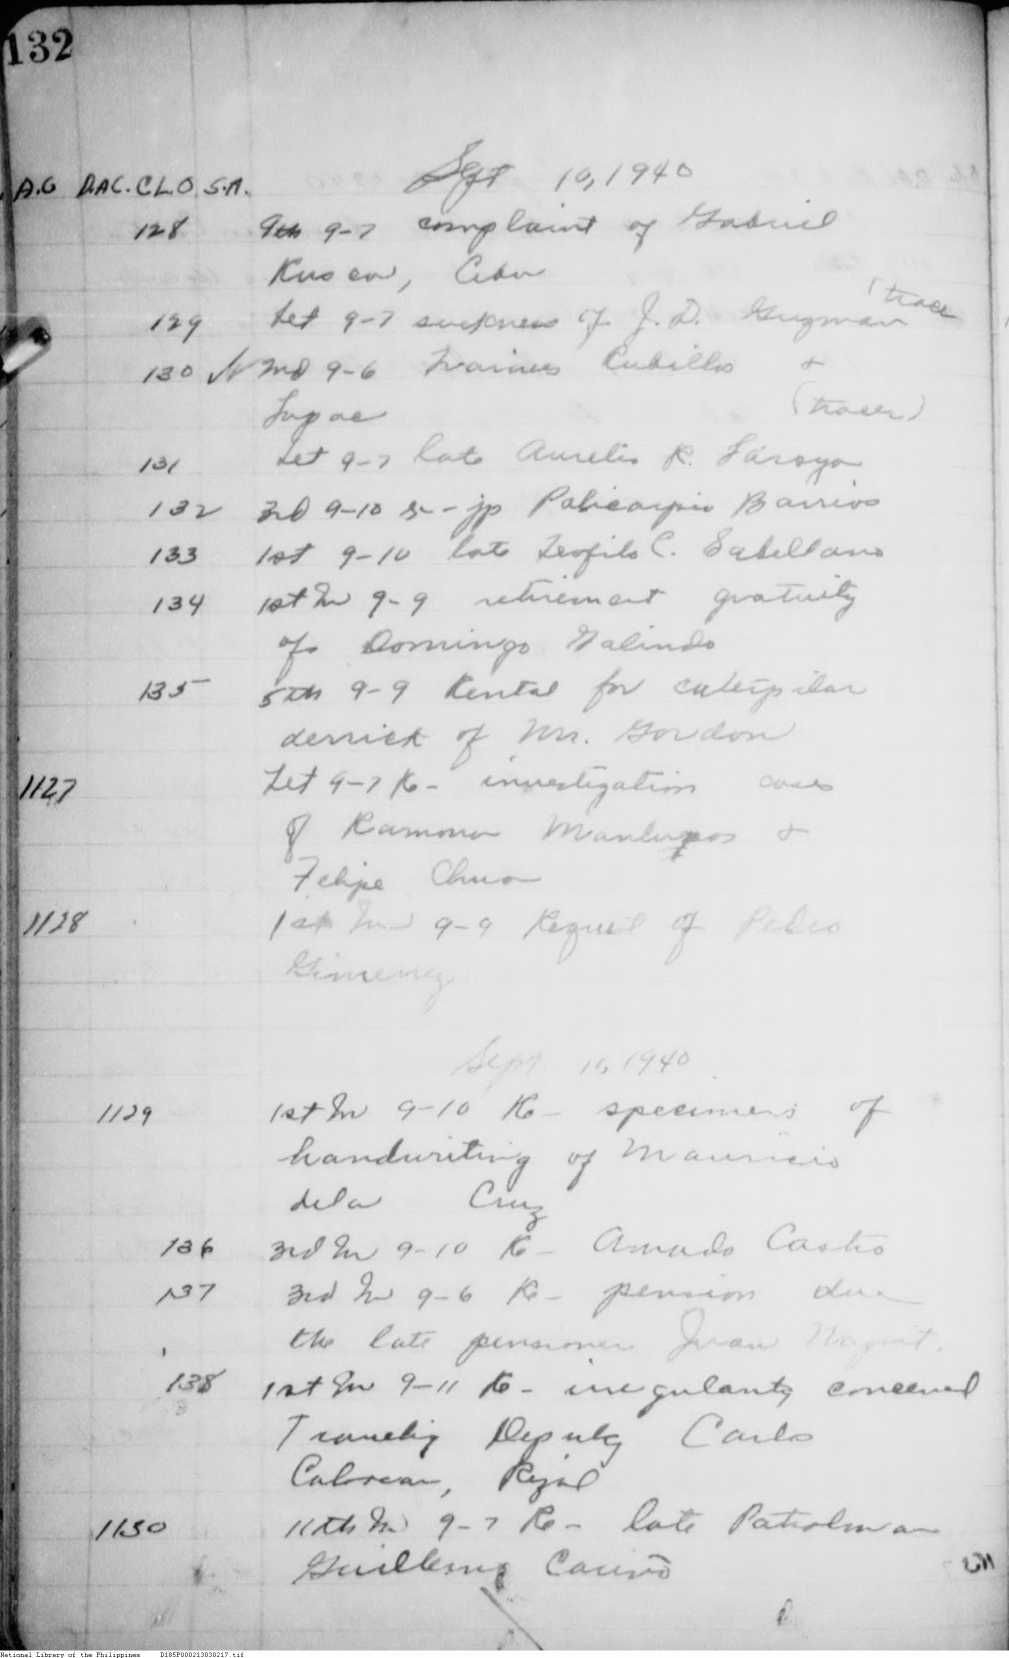 132
A.G D.A.C. C.L.O. S.A. Sept 10, 1940
128 9th 9-7 complaint of Gabriel
Cebu
129 Let 9-7 sickness of J. D. Guzman (tracer
130 2nd 9-6 Trainees Cubillo &
(tracer)
131 Let 9-7 late Aurelio R.
132 3rd 9-10 jp Policarpio Barrios
133 1st 9-10 late Teofilo C. Sabellano
134 1st In 9-9 retirement gratuity
of Domingo Galindo
135 5th 9-9 Rental for caterpilar
derrick of Mr. Gordon
1127 Let 9-7 Re- investigation cases
of Ramona &
Felipe Chua
1128 1st In 9-9 Request of Pedro
Gimenez
Sept 1940
1129 1st In 9-10 Re- specimens of
handwriting of Mauricio
dela Cruz
136 3rd In 9-10 Re- Amado Castro
137 3rd In 9-6 Re- pension due
the late pensioner Juan
138 1st In 9-11 Re- irregularity concerned
Deputy
Rizal
1130 11th In 9-7 Re- late Patrolman
Guillermo Cariño
National Library of the Philippines D185P000213030217.tif